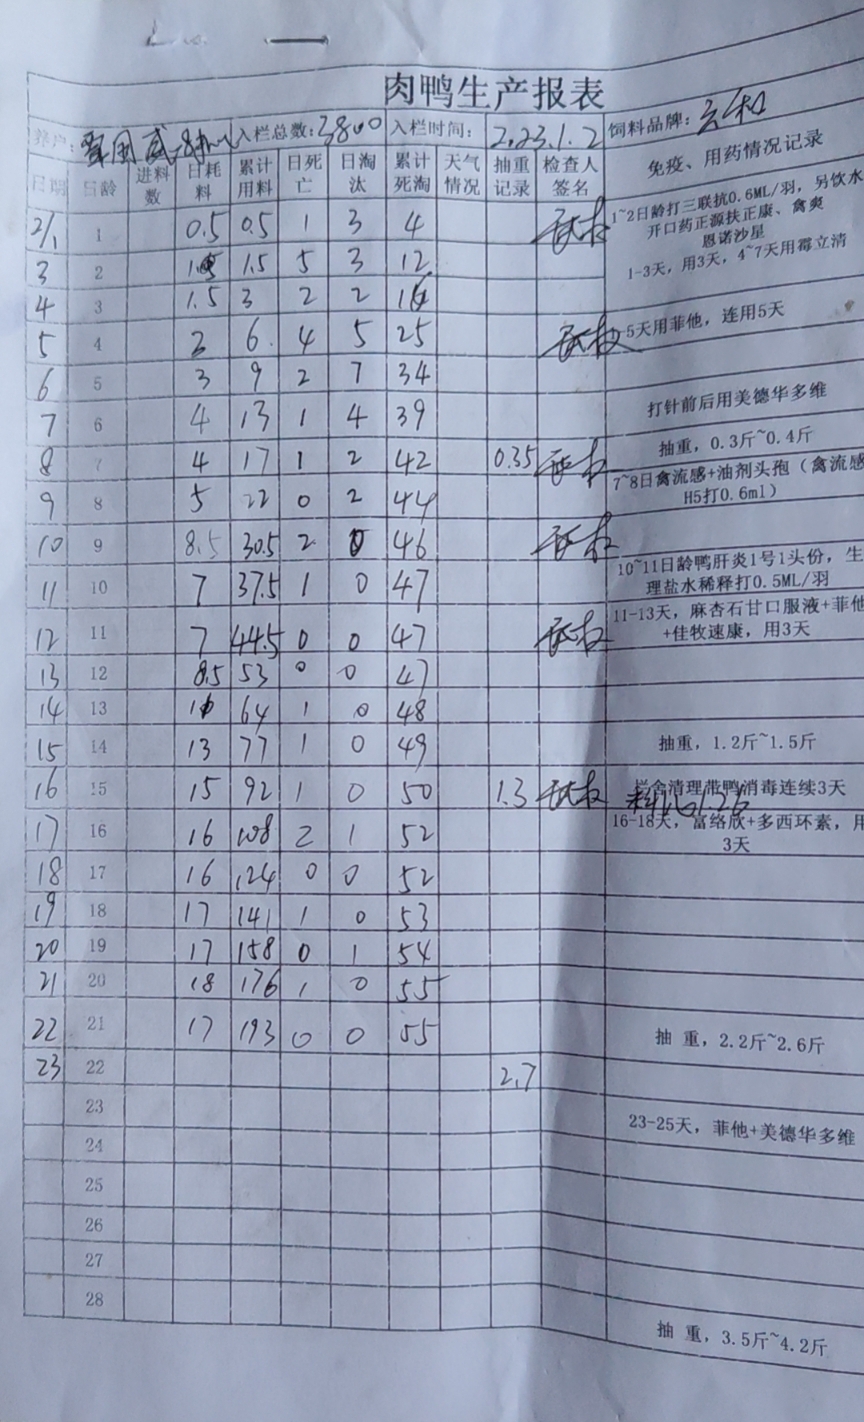 肉鸭生产报表
养户: 入栏总数:3800 入栏时间: 2023.1.2 饲料品牌:
日期 日龄 进料数 日耗料 累计用料 日死亡 日淘汰 累计死淘 天气情况 抽重记录 检查人签名 免疫、用药情况记录
2/1 1 0.5 0.5 1 3 4 1~2日龄打三联抗0.6ML/羽，另饮水
开口药正源扶正康、禽爽
恩诺沙星
3 2 1.5 5 3 12 1-3天，用3天，4~7天用霉立清
4 3 1.5 3 2 2 16
5 4 6 4 5 25 5天用菲他，连用5天
6 5 3 9 2 7 34
7 6 4 13 1 4 39 打针前后用美德华多维
8 7 4 17 1 2 42 0.35 抽重，0.3斤~0.4斤
9 8 5 22 0 2 44 7~8日禽流感+油剂头孢（禽流感
H5打0.6ml）
10 9 8.5 30.5 2 0 46
11 10 7 37.5 1 0 47 10~11日龄鸭肝炎1号1头份，生
理盐水稀释打0.5ML/羽
12 11 7 44.5 0 0 47 11-13天，麻杏石甘口服液+菲他
+佳牧速康，用3天
13 12 8.5 53 0 0 47
14 13 64 1 0 48
15 14 13 77 1 0 49 抽重，1.2斤~1.5斤
16 15 15 92 1 0 50 1.3 栏舍清理带鸭消毒连续3天
17 16 16 108 2 1 52 16-18天，富络欣+多西环素，用
3天
18 17 16 124 0 0 52
19 18 17 141 1 0 53
20 19 17 158 0 1 54
21 20 18 176 1 0 55
22 21 17 193 0 0 55 抽 重，2.2斤~2.6斤
23 22 2.7
23 23-25天，菲他+美德华多维
24
25
26
27
28 抽 重，3.5斤~4.2斤